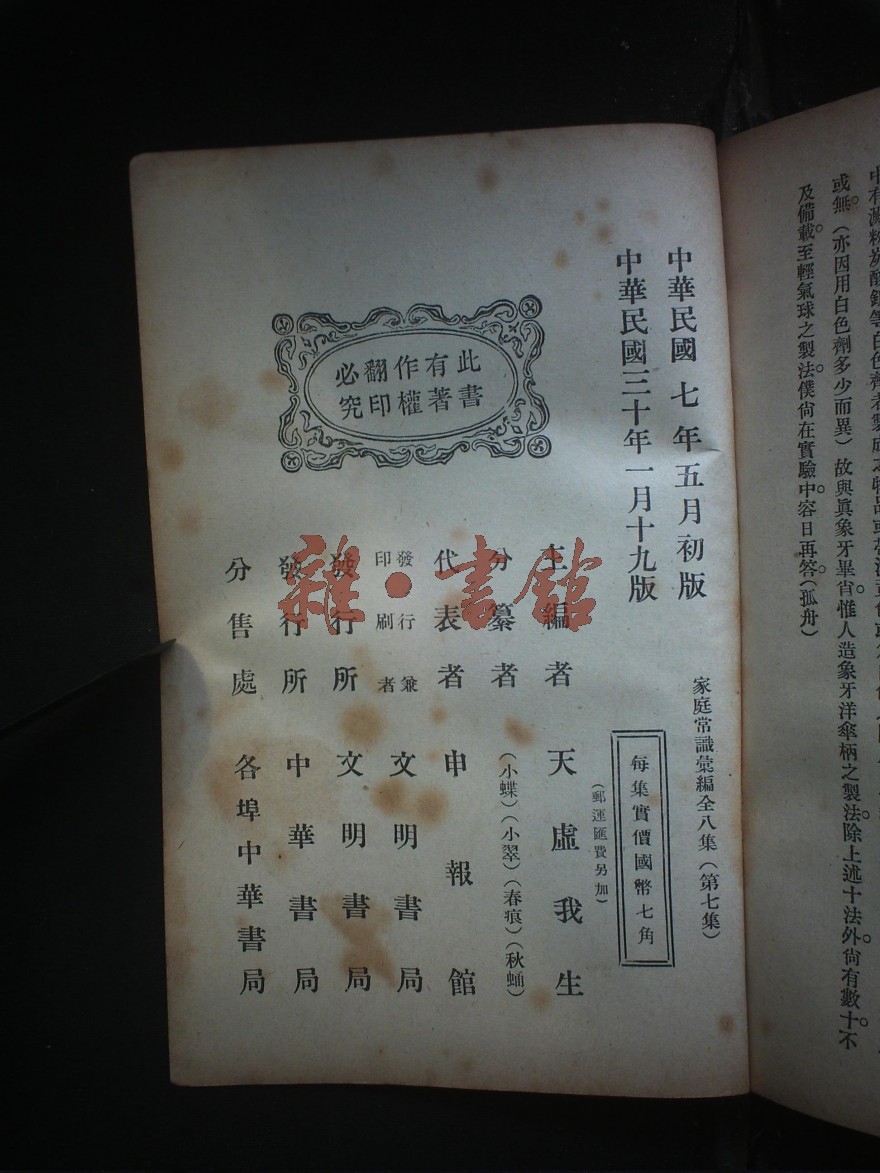 及備載。至輕氣球之製法。僕尚在實驗中。容日再答。(孤舟)
或無(亦因用白色劑多少而異)故與眞象牙畢肖。惟人造象牙洋傘柄之製法。除上述十法外。尚有數十不
中華民國七年五月初版
中華民國三十年一月十九版
家庭常識彙編全八集(第七集)
每集實價國幣七角
(郵運匯費另加)
此書有著作權翻印必究
主編者 天虛我生
分纂者 (小蝶)(小翠)(春痕)(秋蛹)
代表者 申報館
發行兼印刷者 文明書局
發行所 文明書局
發行所 中華書局
分售處 各埠中華書局
雜·書館